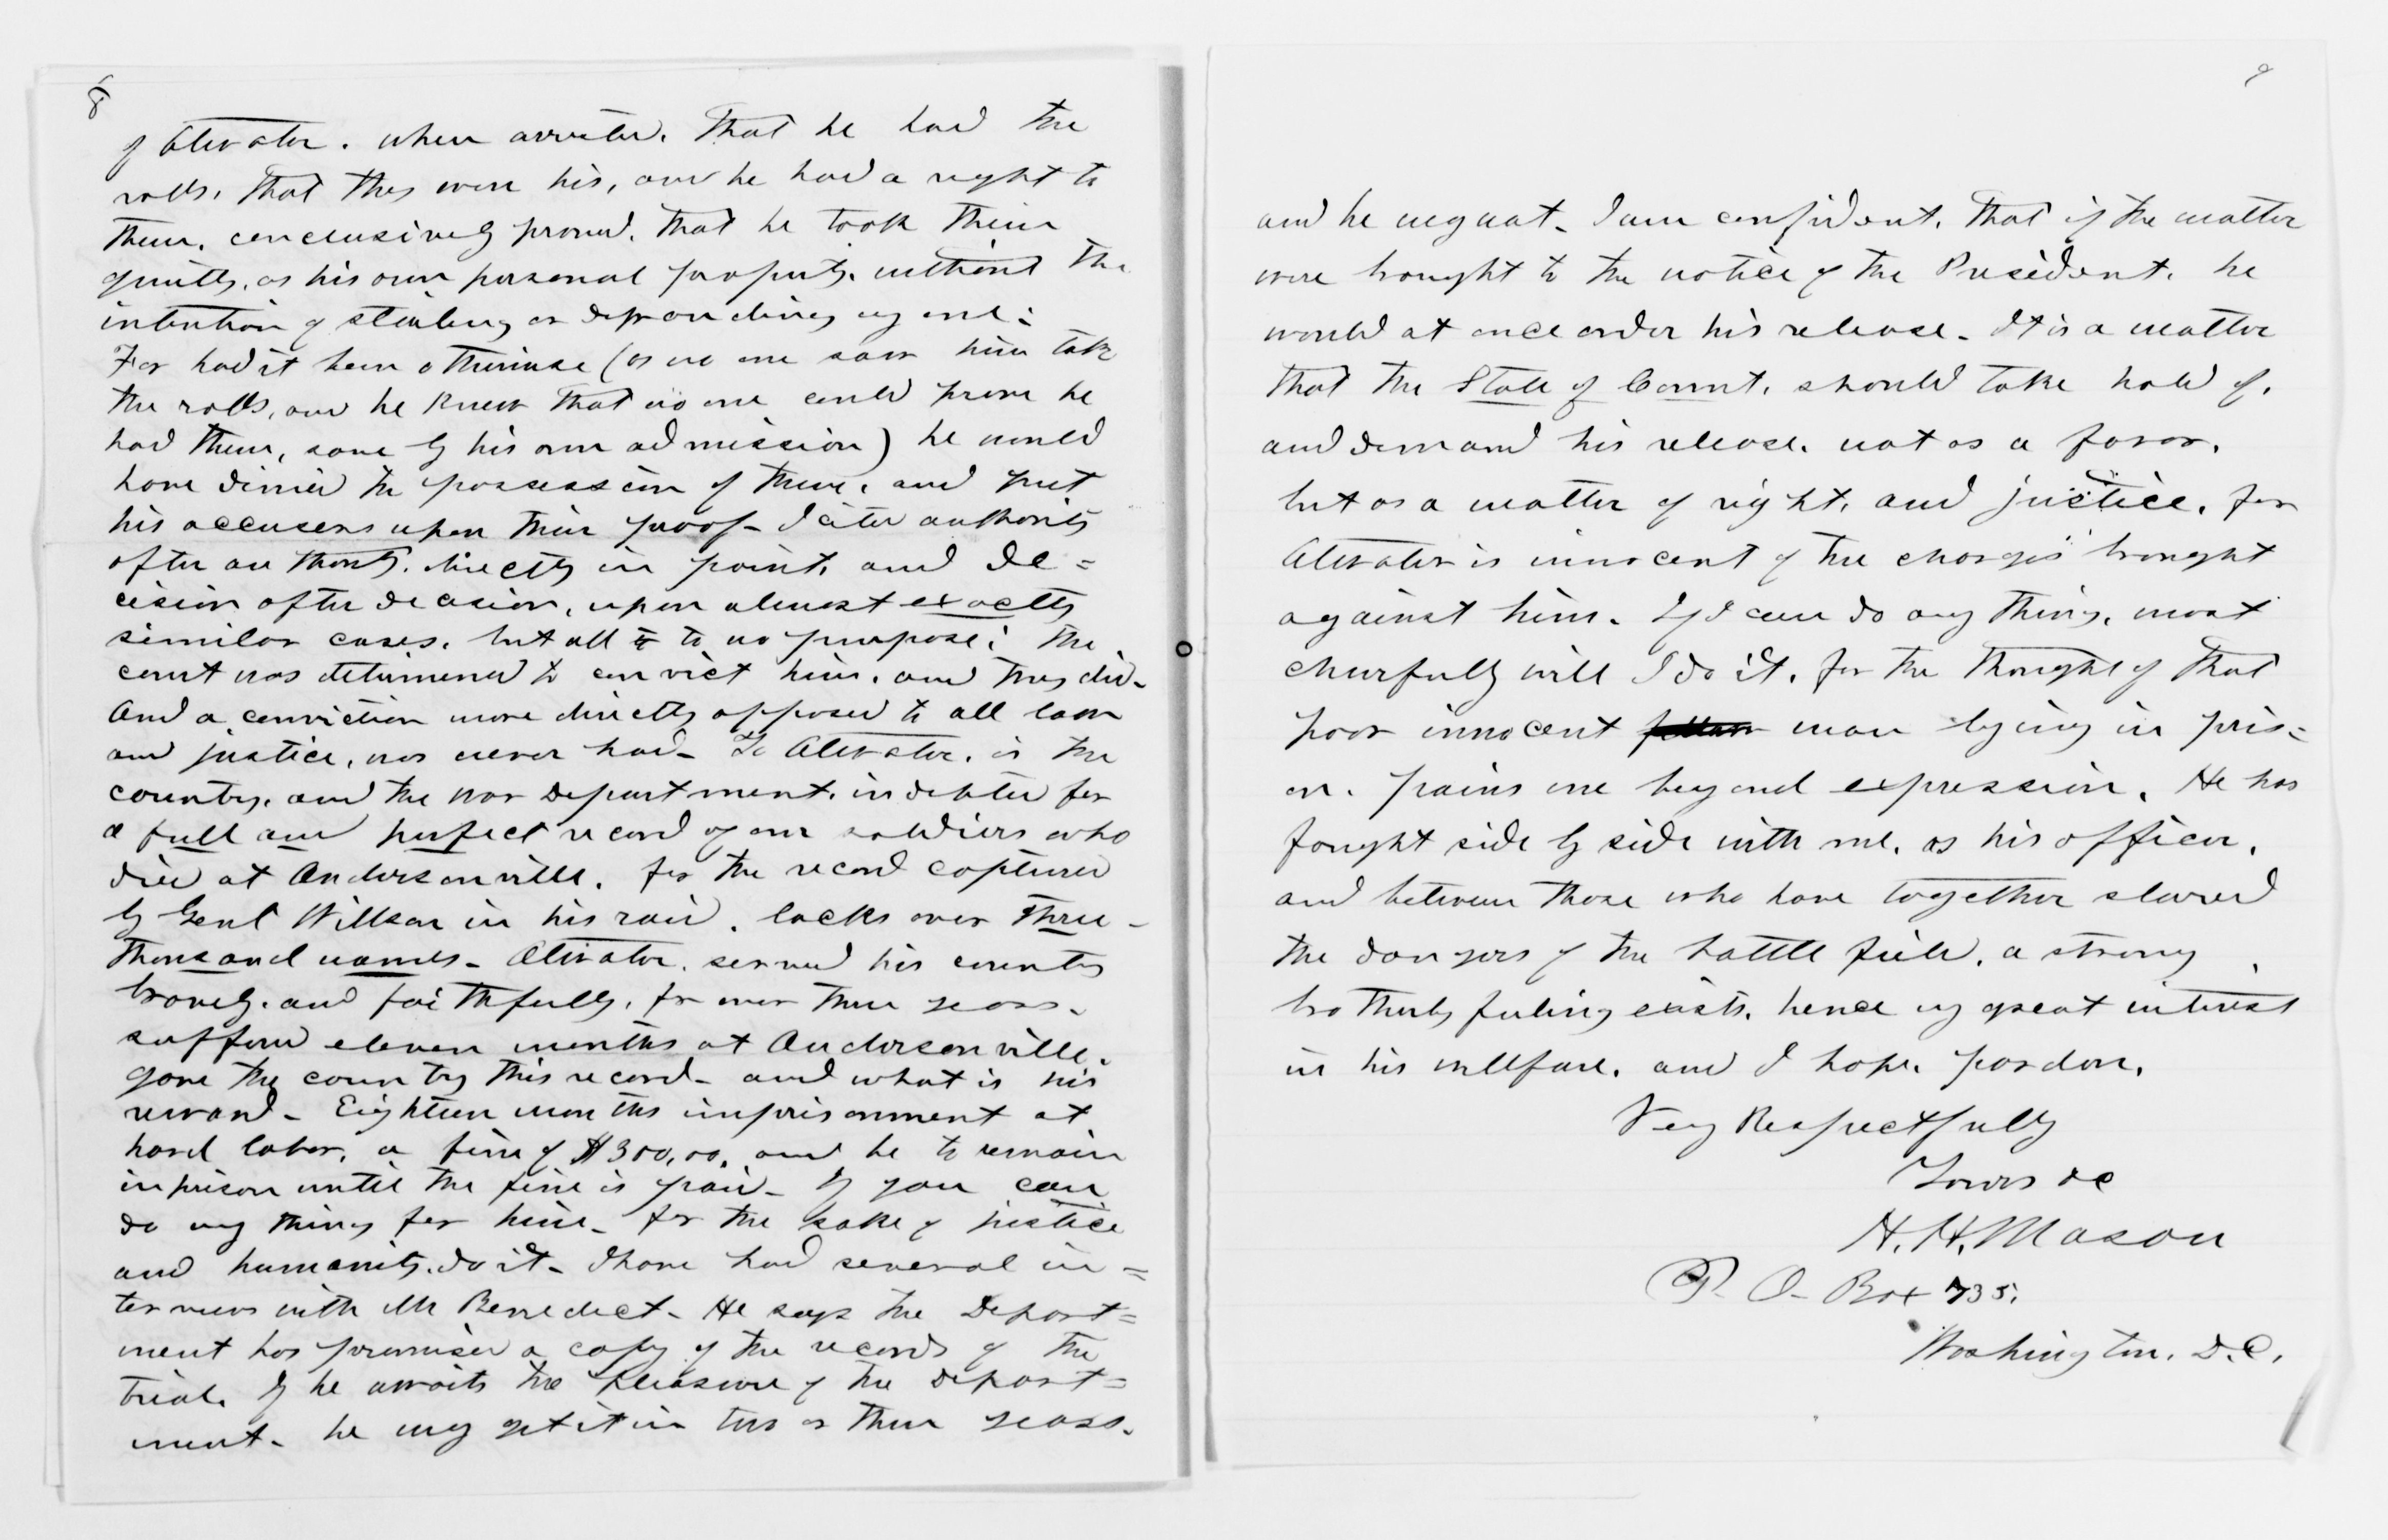 8
of Atwater. when arrested. That he had the
rolls. That they were his, and he had a right to
them. conclusively proved. that he took them
quietly, as his own personal property. without the
intention of stealing or defrauding any one:
For had it been otherwise (as no one saw him take
the rolls, and he knew that no one could prove he
had them, save by his own admission) he would
have denied the possession of them, and put
his accusers upon their proof - I cited authority
after authority. directly in point, and de=
cision after decision, upon almost exactly
similar cases. but all to to no purpose; The
court was determined to convict him. and they did -
And a conviction more directly opposed to all law
and justice, was never had - To Atwater. is the
country, and the War Department. indebted for
a full and perfect record of our soldiers who
died at Andersonville. for the record captured
by Genl Wilson in his raid. lacks over three -
thousand names - Atwater. served his country
bravely. and faithfully. for over three years -
suffered eleven months at Andersonville.
gave the country this record - and what is his
reward - Eighteen months imprisonment at
hard labor, a fine of $300,00. and he to remain
in prison until the fine is paid - If you can
do any thing for him - for the sake of justice
and humanity. do it - I have had several in=
terviews with Mr Benedict - He says the Depart=
ment has promised a copy of the records of the
trial. If he awaits the pleasure of the depart=
ment - he may get it in two or three years.
9
and he may not - I am confident. That if the matter
were brought to the notice of the President. he
would at once order his release - It is a matter
that the State of Connt. should take hold of.
and demand his release. not as a favor.
but as a matter of right, and justice. for
Atwater is innocent of the charges brought
against him - If I can do any thing. most
cheerfully will I do it. for the thought of that
poor innocent fellow man lying in pris=
on. pains me beyond expression. He has
fought side by side with me. as his officer.
and between those who have together shared
the dangers of the battle field. a strong
brotherly feeling exists. hence my great interest
in his wellfare. and I hope. pardon.
Very Respectfully
Yours &c
H. H. Mason
P. O - Box 735.
Washington. D.C.